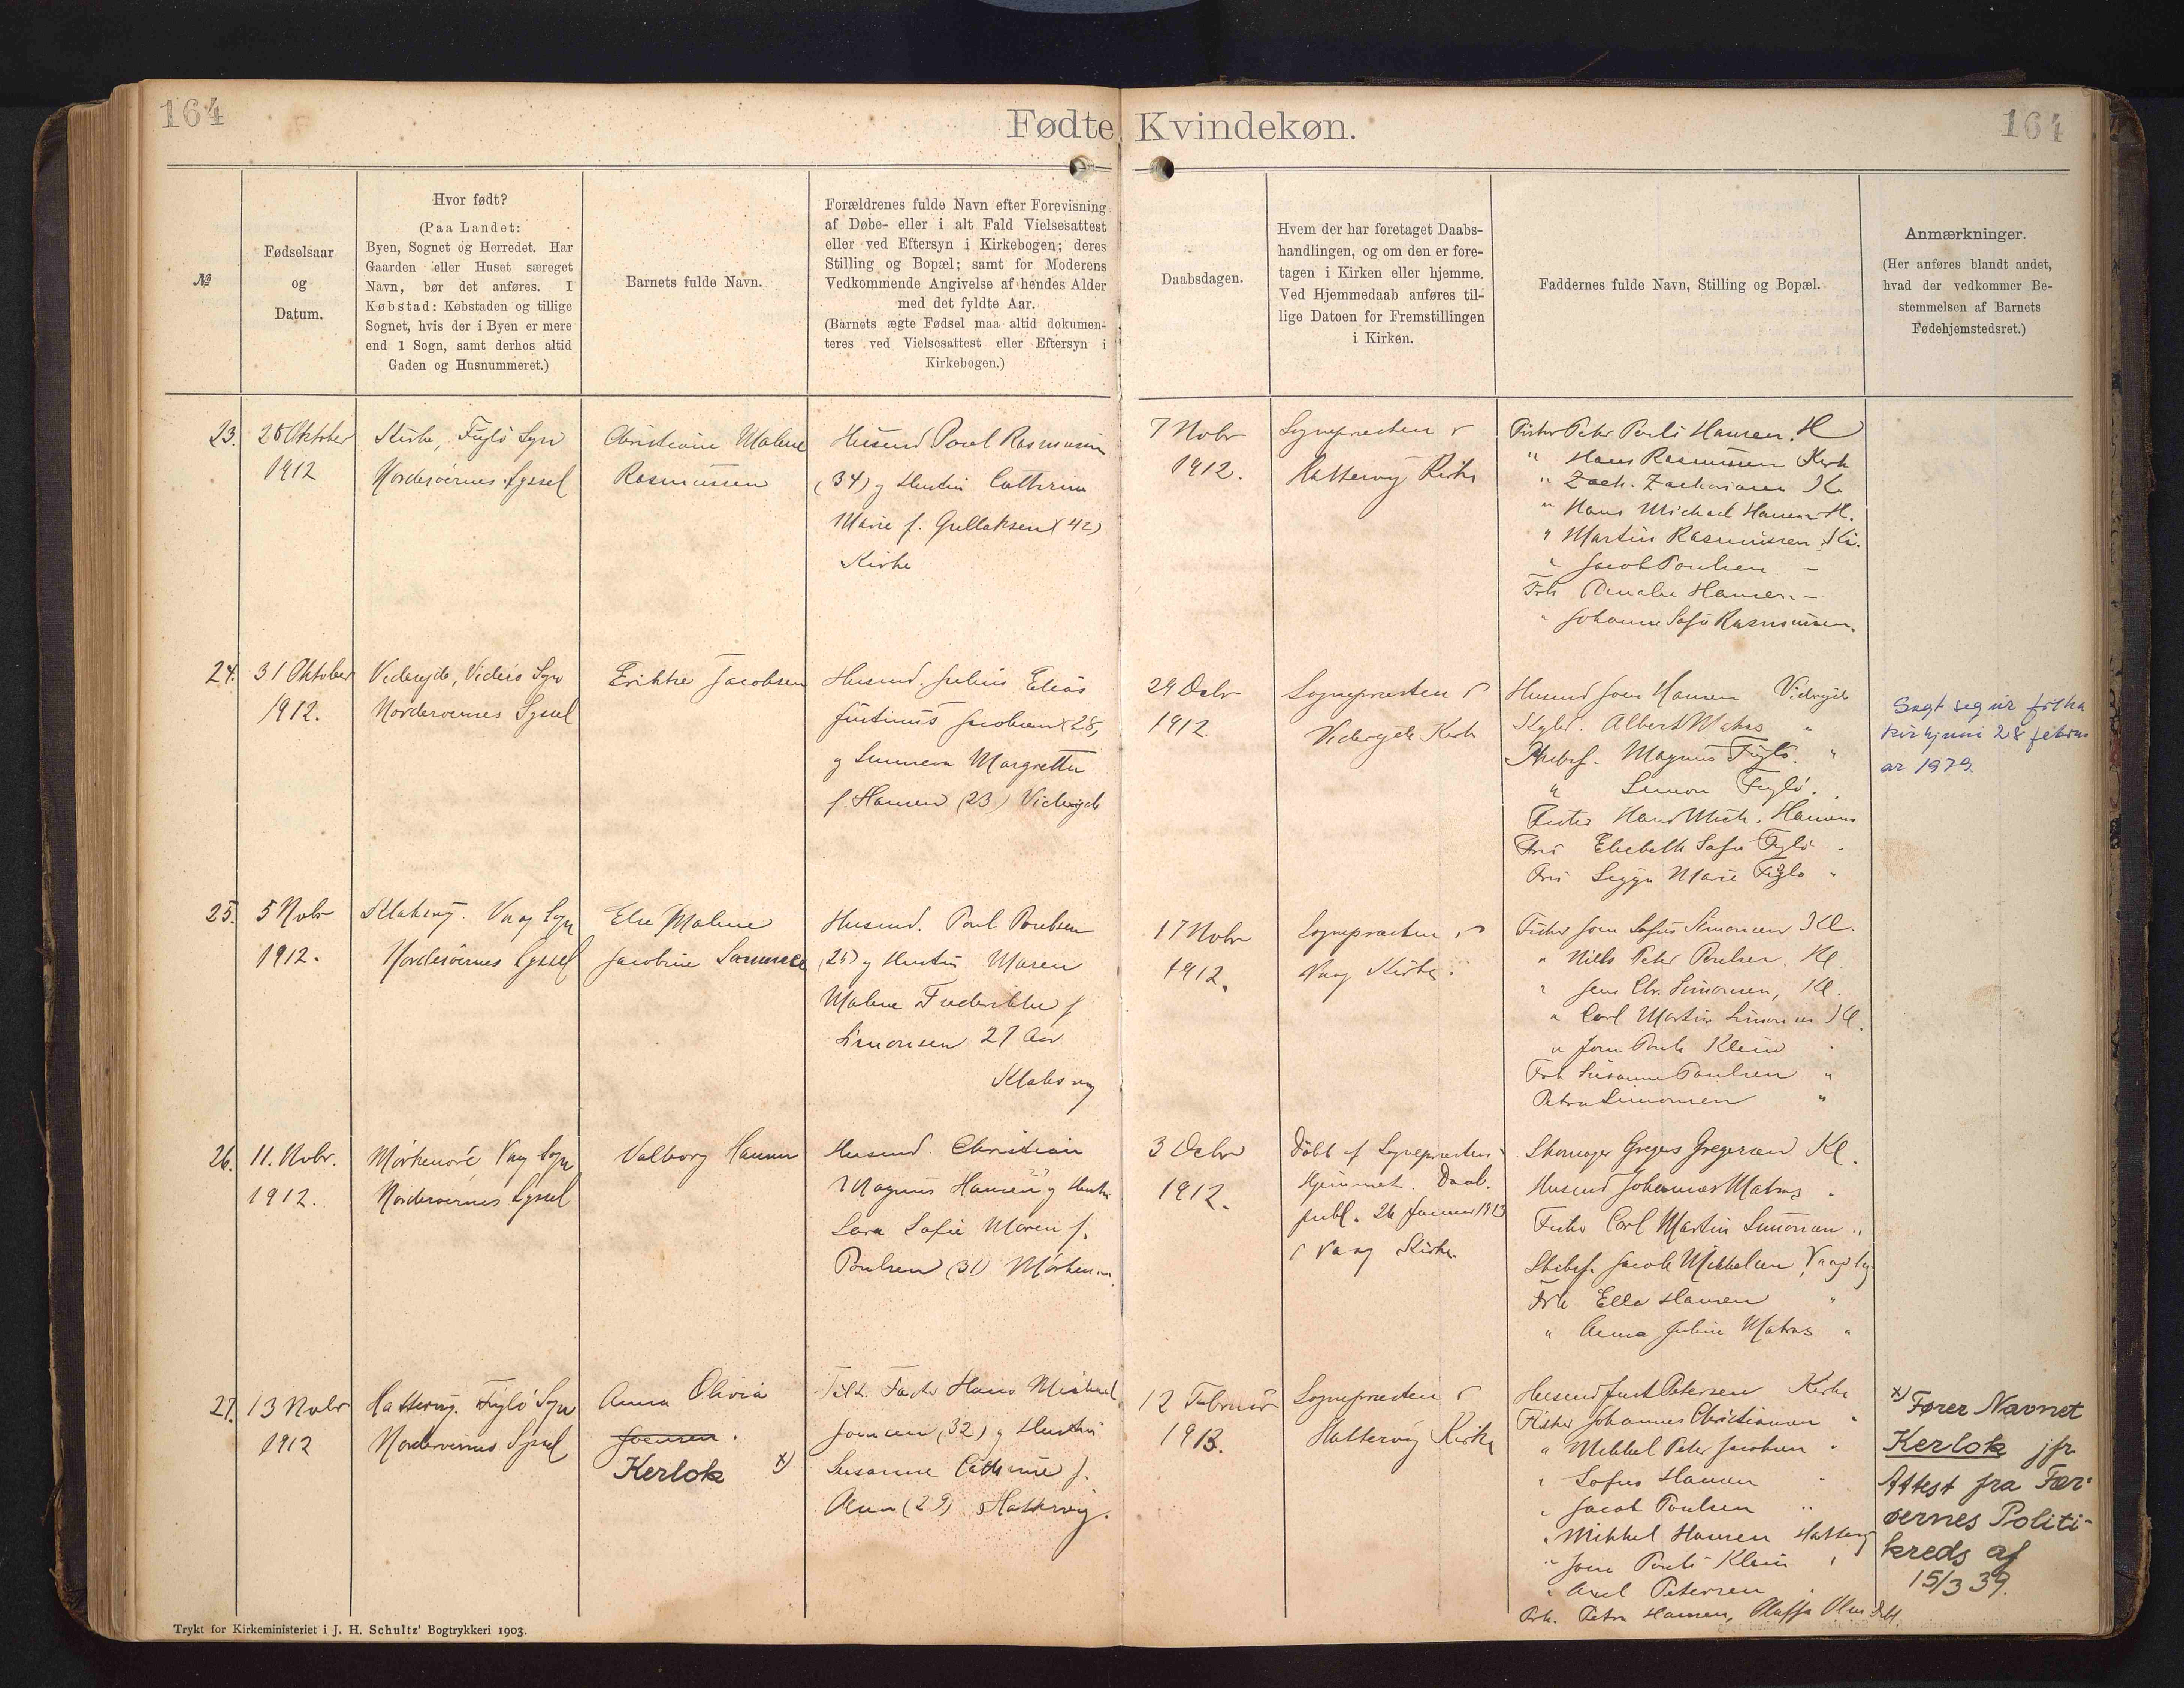 164
Fødte Kvindekøn.
164
№
Fødselsaar
og
Datum.
Hvor født?
(Paa Landet:
Byen, Sognet og Herredet. Har
Gaarden eller Huset særeget
Navn, bør det anføres. I
Købstad: Købstaden og tillige
Sognet, hvis der i Byen er mere
end 1 Sogn, samt derhos altid
Gaden og Husnummeret.)
Barnets fulde Navn.
Forældrenes fulde Navn efter Forevisning
af Døbe- eller i alt Fald Vielsesattest
eller ved Eftersyn i Kirkebogen; deres
Stilling og Bopæl; samt for Moderens
Vedkommende Angivelse af hendes Alder
med det fyldte Aar.
(Barnets ægte Fødsel maa altid dokumen-
teres ved Vielsesattest eller Eftersyn i
Kirkebogen.)
Daabsdagen.
Hvem der har foretaget Daabs-
handlingen, og om den er fore-
tagen i Kirken eller hjemme.
Ved Hjemmedaab anføres til-
lige Datoen for Fremstillingen
i Kirken.
Faddernes fulde Navn, Stilling og Bopæl.
Anmærkninger.
(Her anføres blandt andet,
hvad der vedkommer Be-
stemmelsen af Barnets
Fødehjemstedsret.)
23.
Oktober
1912
Kirke, Fuglö Sgn
Norderöernes Syssel
Christine Malene
Rasmussen
Husmd Poul Rasmussen
(34) og Hustru Cathrina
Marie f. Gullaksen (42)
Kirke
7 Nobr
1912.
Sognepræsten i
Hattervig Kirke
Peter Hansen. H
" Hans Rasmussen Kirke
" Zach. Zachariasen K
" Hans Michael Hansen H.
" Martin Rasmussen Ki.
" Jacob Poulsen -
Hansen -
" Johanne Rasmussen.
24.
31 Oktober
1912.
Videreide, Viderö Sgn
Norderöernes Syssel
Erikke Jacobsen
Husmd. Julius Elias
Justinus Jacobsen (28)
og Sunneva Margretha
f. Hansen (23) Videreide
29 Decbr
1912.
Sognepræsten i
Videreide Kirke
Husmd Joen Hansen Videreide
Albert Matras "
Magnus Fuglö. "
" Simon Fuglö.
Hans Mich. Hansen
Elsebeth Sofie Fuglö "
Marie Fuglö "
Sagt seg úr fólka
kirkjuni 28 februar
1979.
25.
5 Nobr
1912.
Klaksvig. Vaag Sgn
Norderöernes Syssel
Else Malene
Jacobine
Husmd. Poul Poulsen
og Hustru Maren
Malene Frederikke f
Simonsen 27 Aar
Klaksvig
17 Nobr
1912.
Sognepræsten i
Vaag Kirke.
Fisker Joen Sofus Simonsen Kl.
" Niels Peter Poulsen. Kl.
" Jens Chr. Simonsen, Kl.
" Carl Martin Simonsen Kl.
" Joen Pauli Klein "
Frk Susanne Poulsen "
Petra Simonsen "
26.
11. Nobr.
1912.
Mörkenöre Vaag Sgn
Norderöernes Syssel
Valborg Hansen
Husmd. Christian
Magnus Hansen og Hustru
Sara Sofie Maren f.
Poulsen (31) Mörkenöre
3 Decbr
1912.
Döbt af Sognepræsten i
Hjemmet. Daab.
publ. 26 Januar 1913
i Vaag Kirke.
Skomager Gregers Gregersen Kl.
Husmd Johannes Matras "
Fisker Carl Martin Simonsen "
Jacob Mikkelsen, Vaag
Frk Ella Hansen "
" Anna Juline Matras "
27.
13 Nobr
1912
Hattervig. Fuglö Sgn
Norderöernes Syssel
Anna Olivia
Joensen.
Kerlok x)
Hans Michael
Joensen (32) og Hustru
Susanne Cathrine f.
(29) Hattervig.
12 Februar
1913.
Sognepræsten i
Hattervig Kirke
Husmd Just Petersen Kirke
Fisker Johannes Christiansen "
" Mikkel Peter Jacobsen "
" Sofus Hansen "
" Jacob Poulsen "
" Mikkel Hansen Hattervig
" Joen Pauli Klein "
" Axel Petersen "
Frk. Petra Hansen,
x) Fører Navnet
Kerlok jfr
Attest fra Fær-
øernes Politi-
kreds af
15/3 39.
Trykt for Kirkeministeriet i J. H. Schultz' Bogtrykkeri 1903.